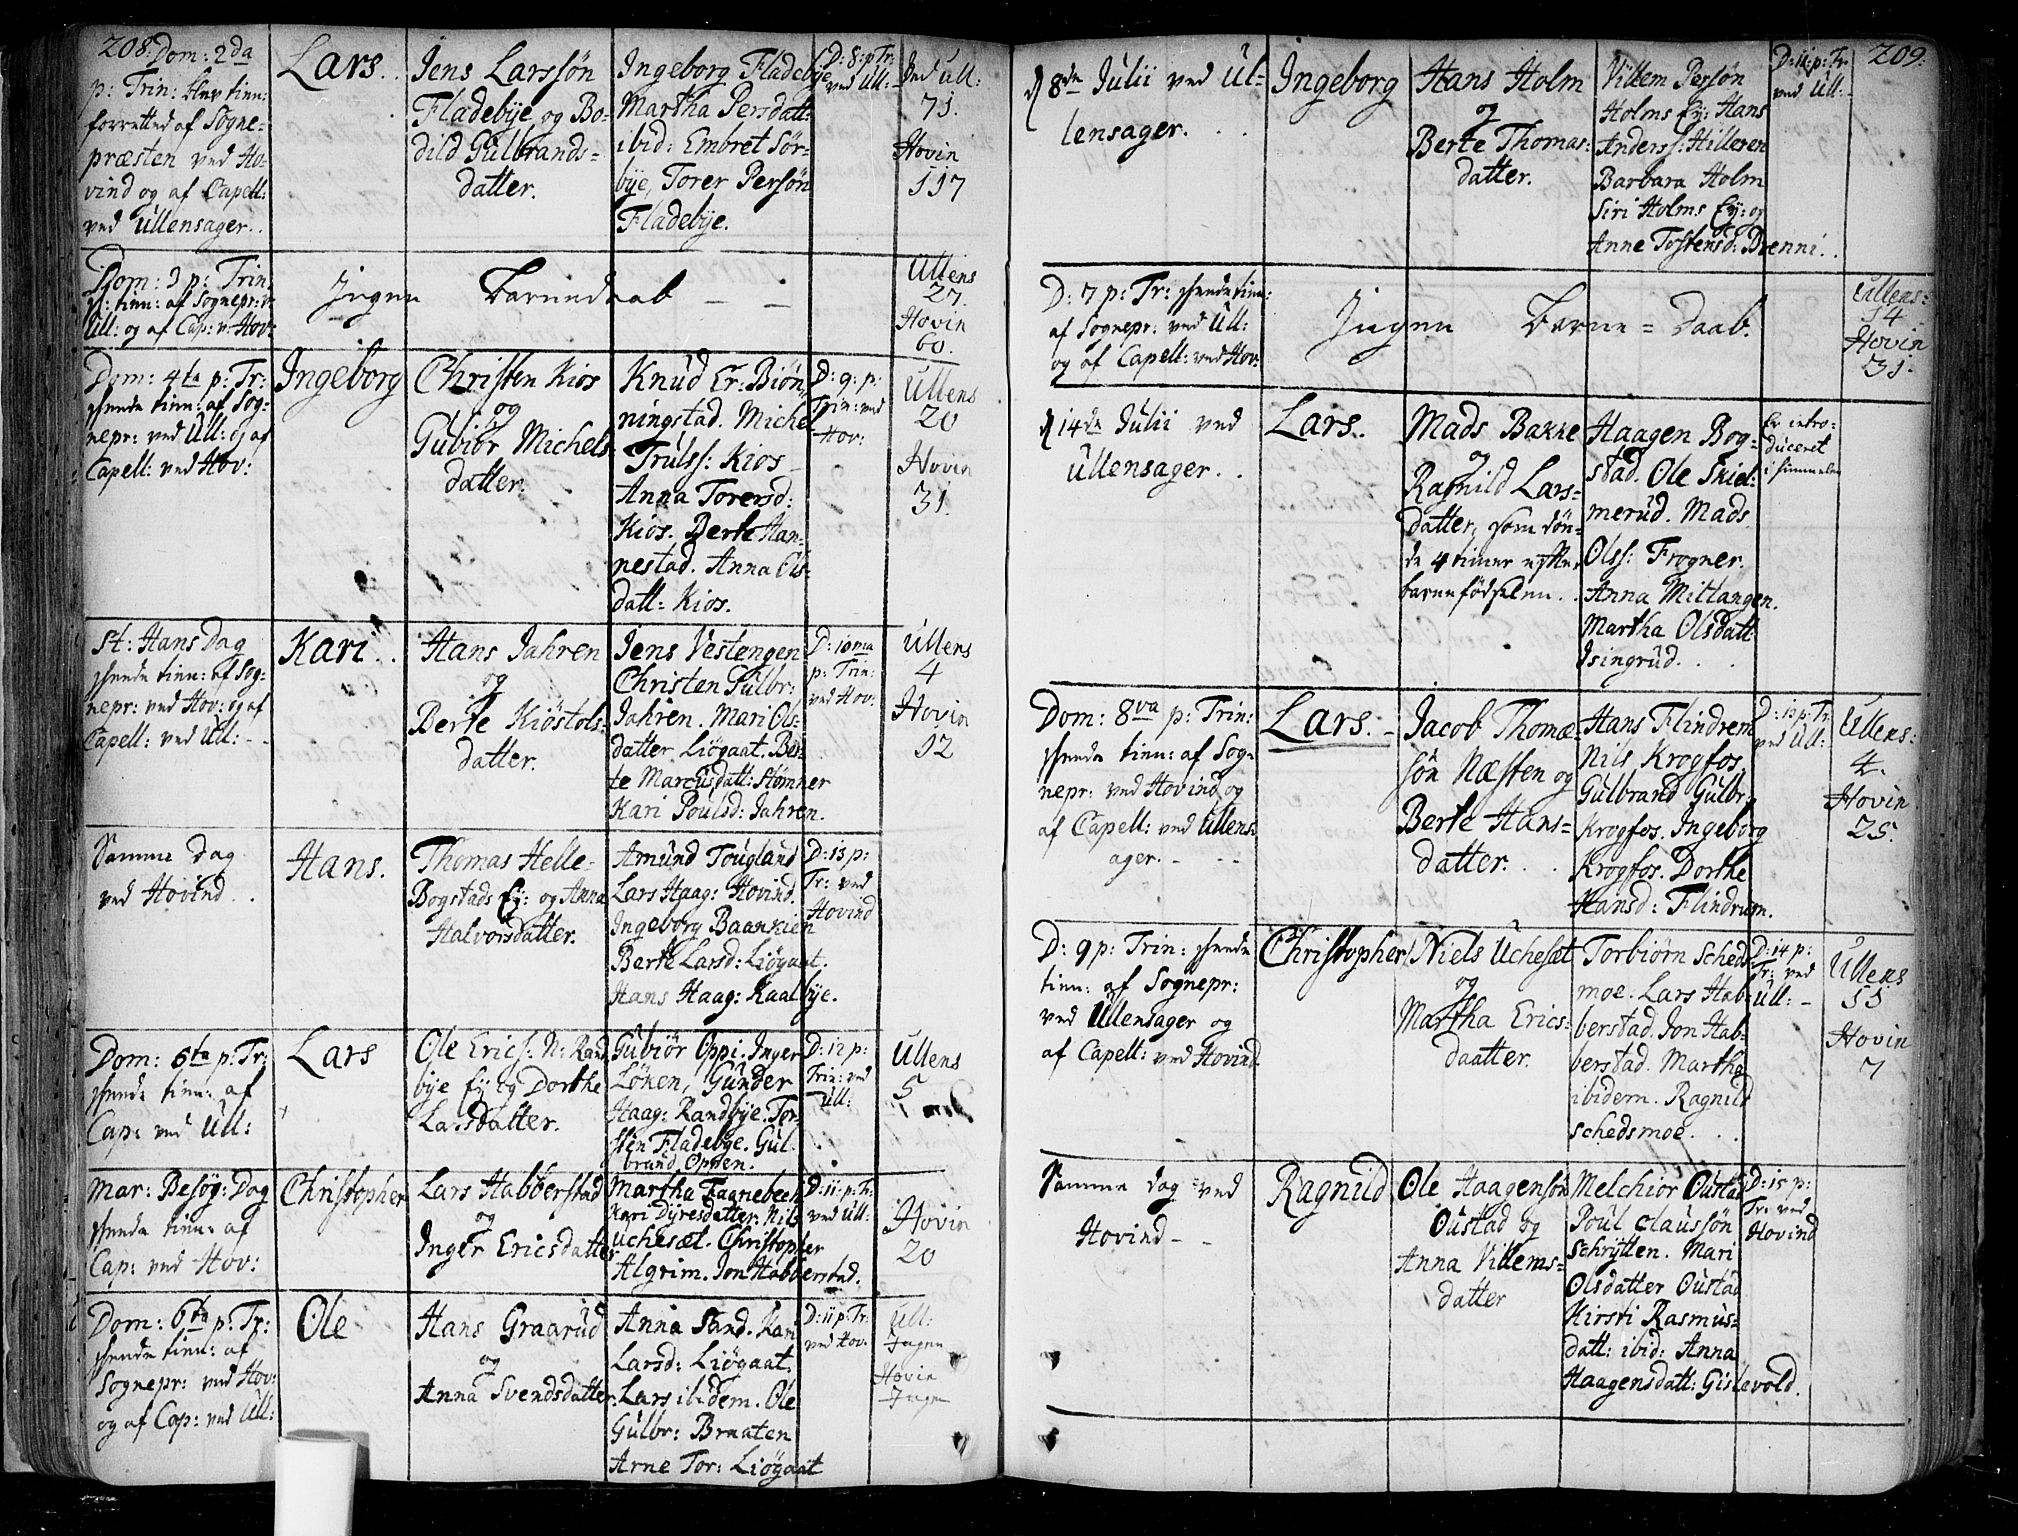 208. Dom: 2da
p: Trin: tien:
forretted af Sogne-
præsten ved Ho-
vind og af Capell:
ved Ullensager.
Lars.
Jens Larssøn
Fladebÿe og Bo-
dild Gulbrands-
datter.
Ingeborg Fladebÿe
Martha Persdatt:
ibid: Embret Sør-
bÿe, Torer Persøn
Fladebÿe.
D: 8: p: Tr:
ved Ull:
Ved Ull:
71.
Hovin
117
Dom: 3 p: Trin:
tien: af Sognepr: v:
Ull: og af Cap: v: Hov:
Ingen Barnedaab
Ullens
27.
Hovin
60.
Dom: 4ta p: Tr:
skeede tien: af Sog-
nepr: ved Ull: og af
Capell: ved Hov:
Ingeborg
Christen Kios
og
Gubiør Michels
datter.
Knud Er: Biøn-
ningstad. Michel
Trulss: Kios
Anna Torersd:
Kios. Berte Han-
nestad. Anna Ols-
datt: Kios.
D: 9: p:
Trin: ved
Hov:
Ullens
20
Hovin
31.
St: Hans Dag
skeede tien: af Sog-
nepr: ved Hov: og af
Capell: ved Ull:
Kari.
Hans Jahren
og
Berte Kiøstols-
datter.
Jens Vestengen
Christen Gulbr:
Jahren. Mari Ols-
datter Liøgaat. Ber-
te Marcusdatt: Stomner
Kari Poulsd: Jahren.
D: 10ma
p: Trin:
ved Hov:
Ullens
4
Hovin
12
Samme Dag
ved Hovind.
Hans.
Thomas Helle-
Bogstads Eÿ: og Anna
Halvorsdatter.
Amund Tougland
Lars Haag: Hovind.
Ingeborg Baankien
Berte Larsd: Liøgaat.
Hans Haag: Kaalbÿe.
D: 13 p:
Tr: ved
Hovind
Dom: 6ta p: Tr:
skeede tien: af
Cap: ved Ull:
Lars
Ole Erics: N: Rand
bÿe Eÿ og Dorthe
Larsdatter.
Gubiør Oppi. Inger
Løken, Gunder
Haag: Randbÿe. Tor-
sten Fladebÿe. Gul-
brand Oppen.
D: 12 p:
Trin: ved
Ull:
Ullens
5
Mar: Besøg: Dag
skeede tien: af
Cap: ved Hov:
Christopher
Lars Habberstad
og
Inger Ericsdatter
Martha Fagnebech
Kari Dÿresdatter. Nils
Uchesæt. Christopher
Algrim. Jon Habberstad.
D: 11: p: Tr:
ved Ull:
Hovin
20
Dom: 6ta p: Tr:
skeede tien: af
Sognepr: ved Hov:
og af Cap: ved Ull:
Ole
Hans Graarud
og
Anna Svendsdatter
Anna Sand. Kari
Larsd: Liøgaat.
Lars ibidem. Ole
Gulbr: Braaten
Arne Tor: Liøgaat
D: 11 p: Tr:
ved Hov:
Ull:
Ingen
Hovin
Ingen
209.
8de Julii ved Ul-
lensager.
Ingeborg
Hans Holm
og
Berte Thomas-
datter.
Villem Persøn
Holms Eÿ: Hans
Anderss: Hilleren
Barbara Holm
Siri Holms Eÿ: og
Anne Tostensd: Brenni.
D: 11: p: Tr:
ved Ull:
D: 7 p: Tr: skeede tien:
af Sognepr: ved Ull:
og af Capell: ved Hov:
Ingen Barne-Daab.
Ullens:
14
Hovin
31.
14de Julii ved
Ullensager.
Lars.
Mads Bakke
og
Ragnild Lars-
datter, som døe-
de 4 timer efter
barnefødselen.
Haagen Bog-
stad. Ole Skiel-
merud. Mads
Olss: Frogner.
Anna Mittangen.
Martha Olsdatt:
Isingrud.
Er intro-
duceret
i himmelen
Dom: 8va p: Trin:
skeede tien: af Sog-
nepr: ved Hovind og
af Capell: ved Ullens-
ager.
Lars.
Jacob Thomæ-
søn Næsten og
Berte Hans-
datter.
Hans Flindrem
Nils Krogfos
Gulbrand Gulbr:
Krogfos. Ingeborg
Krogfos. Dorthe
Hansd: Flindrum.
D: 13 p: Tr:
ved Ull:
Ullens:
4.
Hovin
25.
D: 9 p: Trin: skeede
tien: af Sognepr:
ved Ullensager og
af Capell: ved Hovind
Christopher
Niels Uchesæt
og
Martha Erics-
daatter.
Torbiørn Scheds-
moe. Lars Hab-
berstad. Jon Hab-
berstad. Martha
ibidem. Ragnild
Schedsmoe.
D: 14 p:
Tr: ved
Ull:
Ullens
11
Hovin
7
Samme dag ved
Hovind
Ragnild
Ole Haagensøn
Oustad og
Anna Villems-
datter
Melchior Oustad
Poul Claussøn
Schrÿtten. Mari
Olsdatter Oustad
Kirsti Rasmus-
datt: ibid: Anna
Haagensdatt: Gislevold.
D: 15 p:
Tr: ved
Hovind